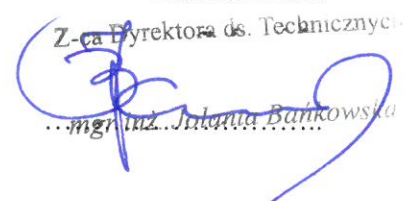 Z-ca Dyrektora ds. Technicznyc
mgr inż. Jolanta Bańkowska